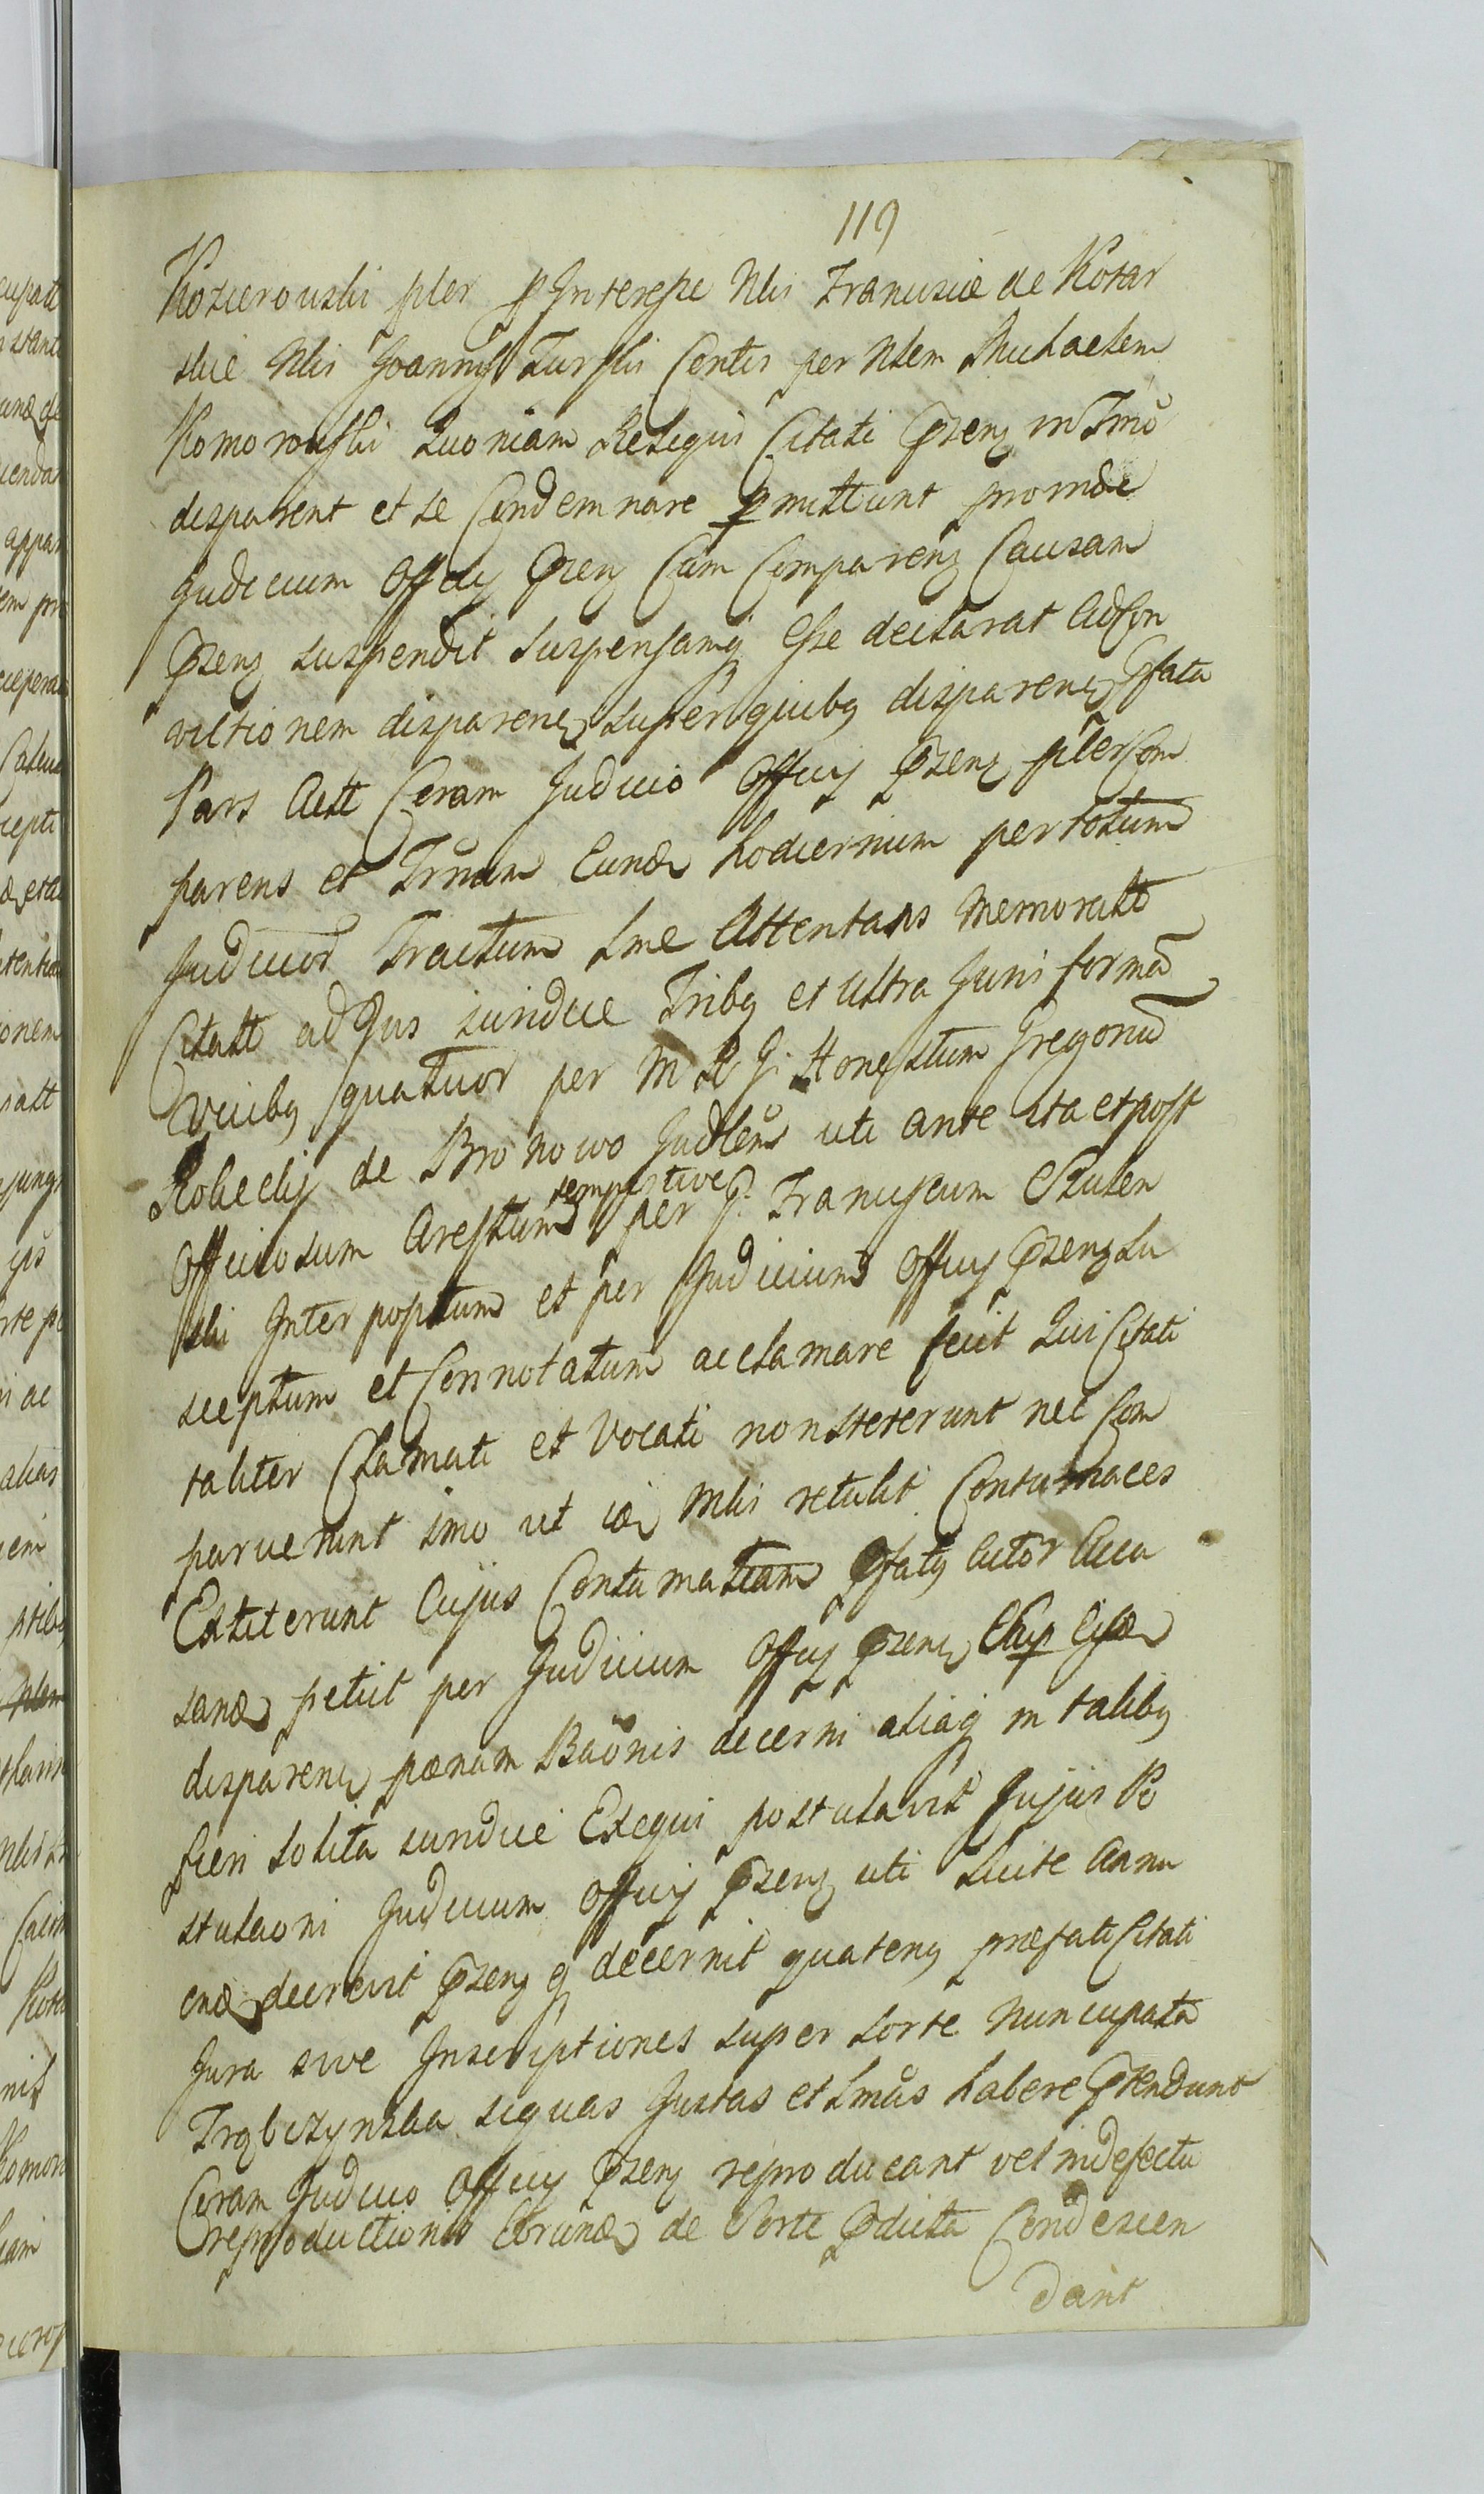 119
Kozierowski pler p Interesse Nlis Franciscæ de Kotar
skie Nlis Joannis Turski Contis per Nlem Michaelem
Komorowski Quoniam Reliqui Citati Pszens in Tmo
disparent et se Condemnare pmittunt proinde
Judicium Officij Pszens Cum Comparens Causam
Pszens suspendit suspensamq Esse declarat ad Con
victionem disparens super quibq disparens Psata
Pars Actt Coram Judicio Officij Pszens pler Com
parens et Trnum Cunde hodiernum per totum
Judiciorz Tractum Lme Attentans memoratt
Citatt ad Jus juridice Tribq et ultra Juris formã
Vicibq quatuor per M R J. Honestum Gregoriũ
de Bronowo Judlem uti ante ita et post
Officiosum Arestum tempestive per G. Franciscum
ski Interpositum et per Judicium Officij Pszens Su
sceptum et Connotatum acclamare fecit Qui Citati
taliter Clamati et Vocati non steterunt nec Com
paruerunt imo ut id Mlis retulit Contumaces
Extiterunt Cujus Contumatiam Psatq Actor Accu
sande petiit per Judicium Officij Pszens Exp Ejsde
disparens pænam Baõnis decerni aliaq in talibq
fieri solita juridice Exequi postulavit Cujus Po
stulaoni Judicium Officij Pszens uti Licite Annu
ende decrevit Pszens q decernit quatenq præfati Citati
Jura sive Inscriptiones super sorte nuncupata
Trąbczynska siquas Justas et Lmas habere Ptendunt
Coram Judicio Officij Pszens reproducant vel in defectu
reproductionis Eorunde de Sorte Pdicta Condescen
dant